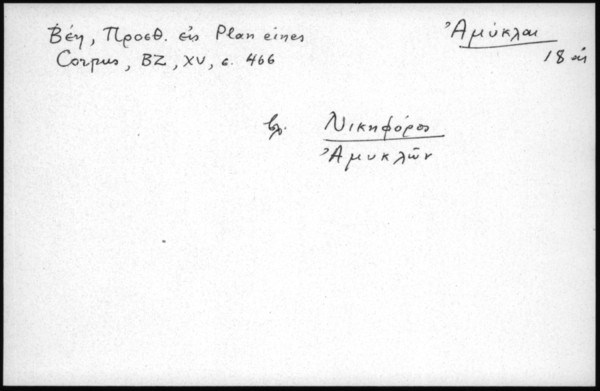 Βέη, Προσθ. εἰς Plan eines
Corpus, BZ, XV, σ. 466
Ἀμύκλαι
18 αἰ
βλ. Νικηφόρος
Ἀμυκλῶν